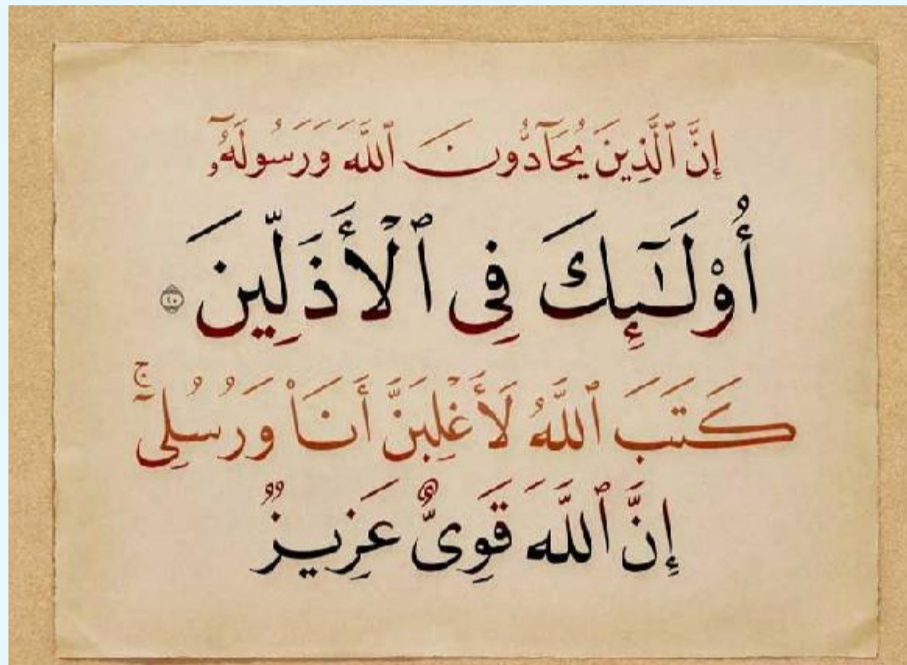 إِنَّ ٱلَّذِينَ يُحَآدُّونَ ٱللَّهَ وَرَسُولَهُۥٓ
أُو۟لَـٰٓئِكَ فِى ٱلْأَذَلِّينَ ٢٠
كَتَبَ ٱللَّهُ لَأَغْلِبَنَّ أَنَا۠ وَرُسُلِىٓ ۚ
إِنَّ ٱللَّهَ قَوِىٌّ عَزِيزٌ